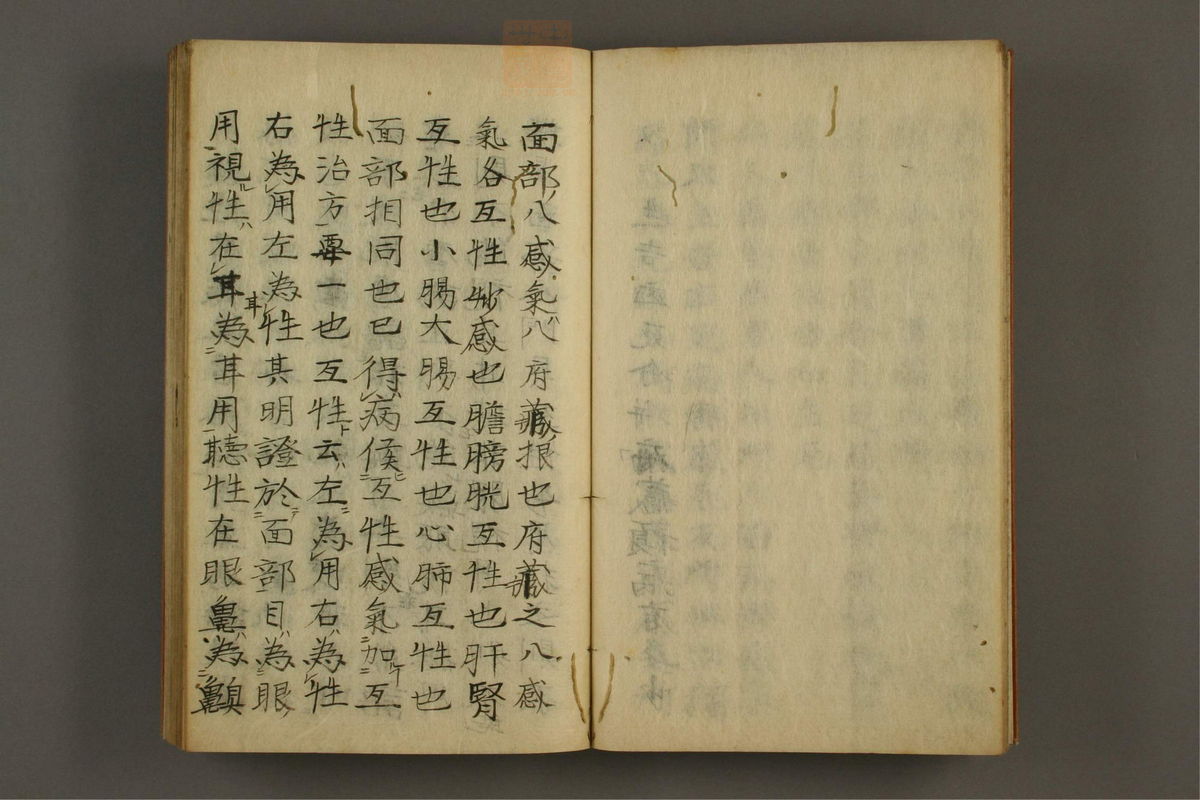 面部ノ八感氣ハ府藏ノ根也府藏之八感
氣各互性妙感也膽膀胱互性也肝腎
互性也小腸大腸互性也心肺互性也
面部相同也已得病候互性感氣加互
性治方要一也互性ト云ハ左為用右ハ為性
右為用左為性其明證於面部目ハ為眼ノ
用視性ハ在耳耳為耳用聽性在眼鼻ハ為齅